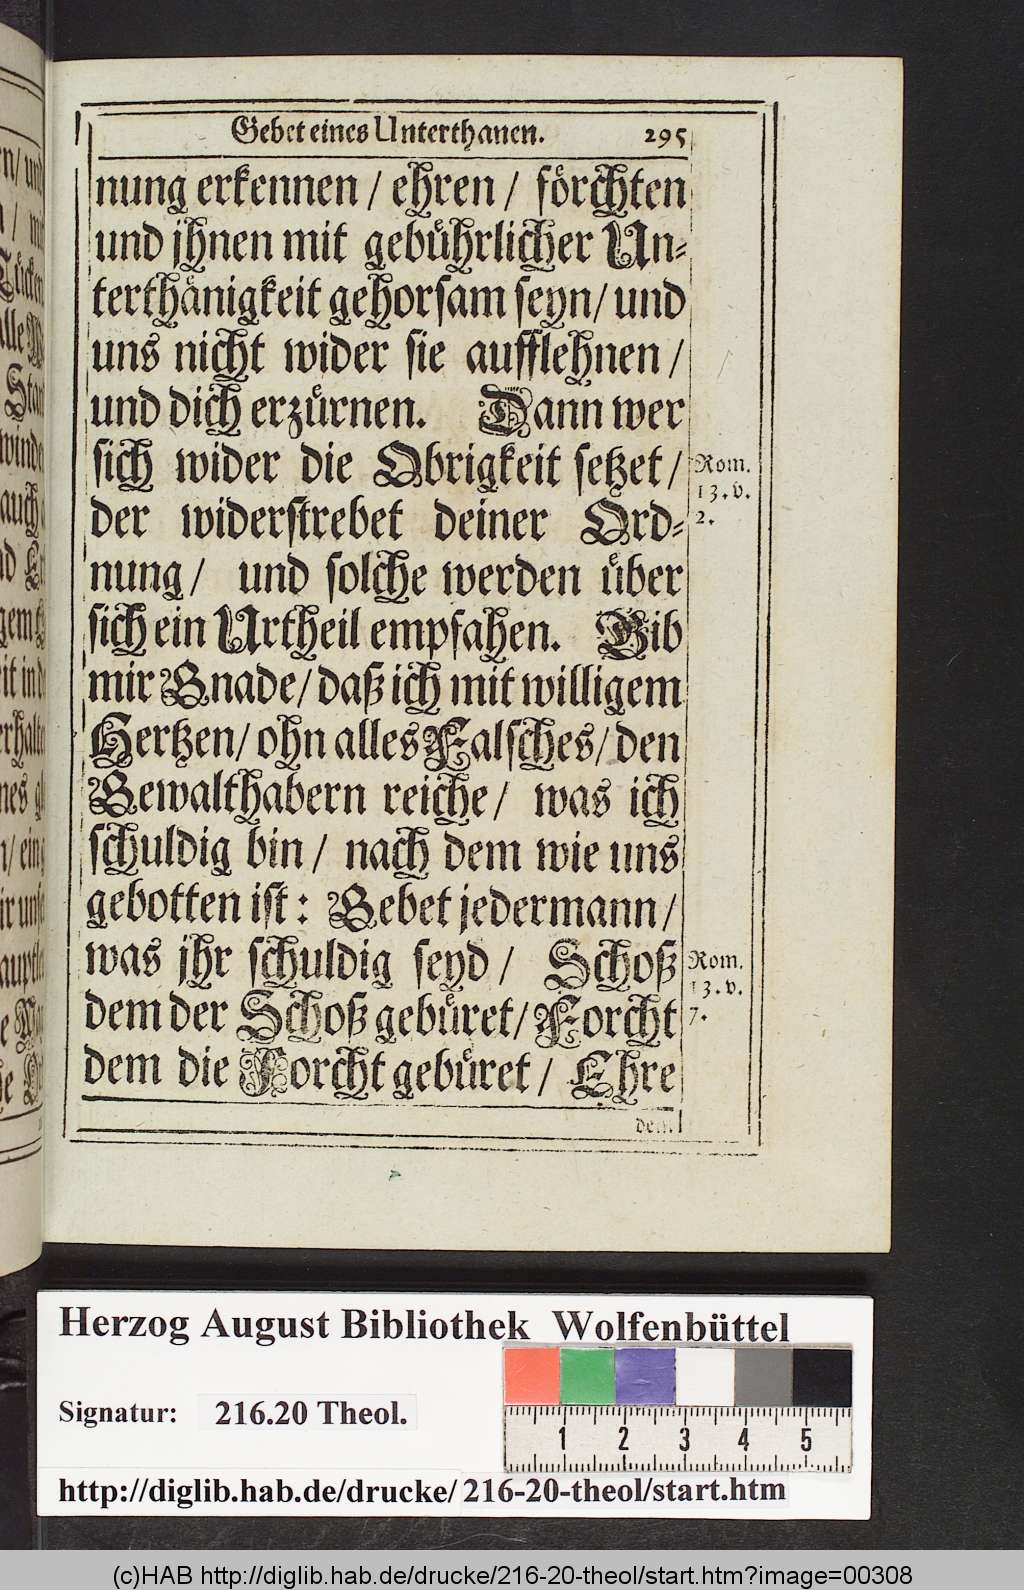 Gebet eines Unterthanen. 295
nung erkennen / ehren / förchten
und jhnen mit gebührlicher Un-
terthänigkeit gehorsam seyn / und
uns nicht wider sie aufflehnen /
und dich erzürnen. Dann wer
sich wider die Obrigkeit setzet /
Rom.
13. v.
2.
der widerstrebet deiner Ord-
nung / und solche werden über
sich ein Urtheil empfahen. Gib
mir Gnade / daß ich mit willigem
Hertzen / ohn alles Falsches / den
Gewalthabern reiche / was ich
schuldig bin / nach dem wie uns
gebotten ist: Gebet jedermann /
was jhr schuldig seyd / Schoß
Rom.
13. v.
7.
dem der Schoß gebüret / Forcht
dem die Forcht gebüret / Ehre
dem
Herzog August Bibliothek Wolfenbüttel
Signatur: 216.20 Theol.
1 2 3 4 5
http://diglib.hab.de/drucke/216-20-theol/start.htm
(c)HAB http://diglib.hab.de/drucke/216-20-theol/start.htm?image=00308